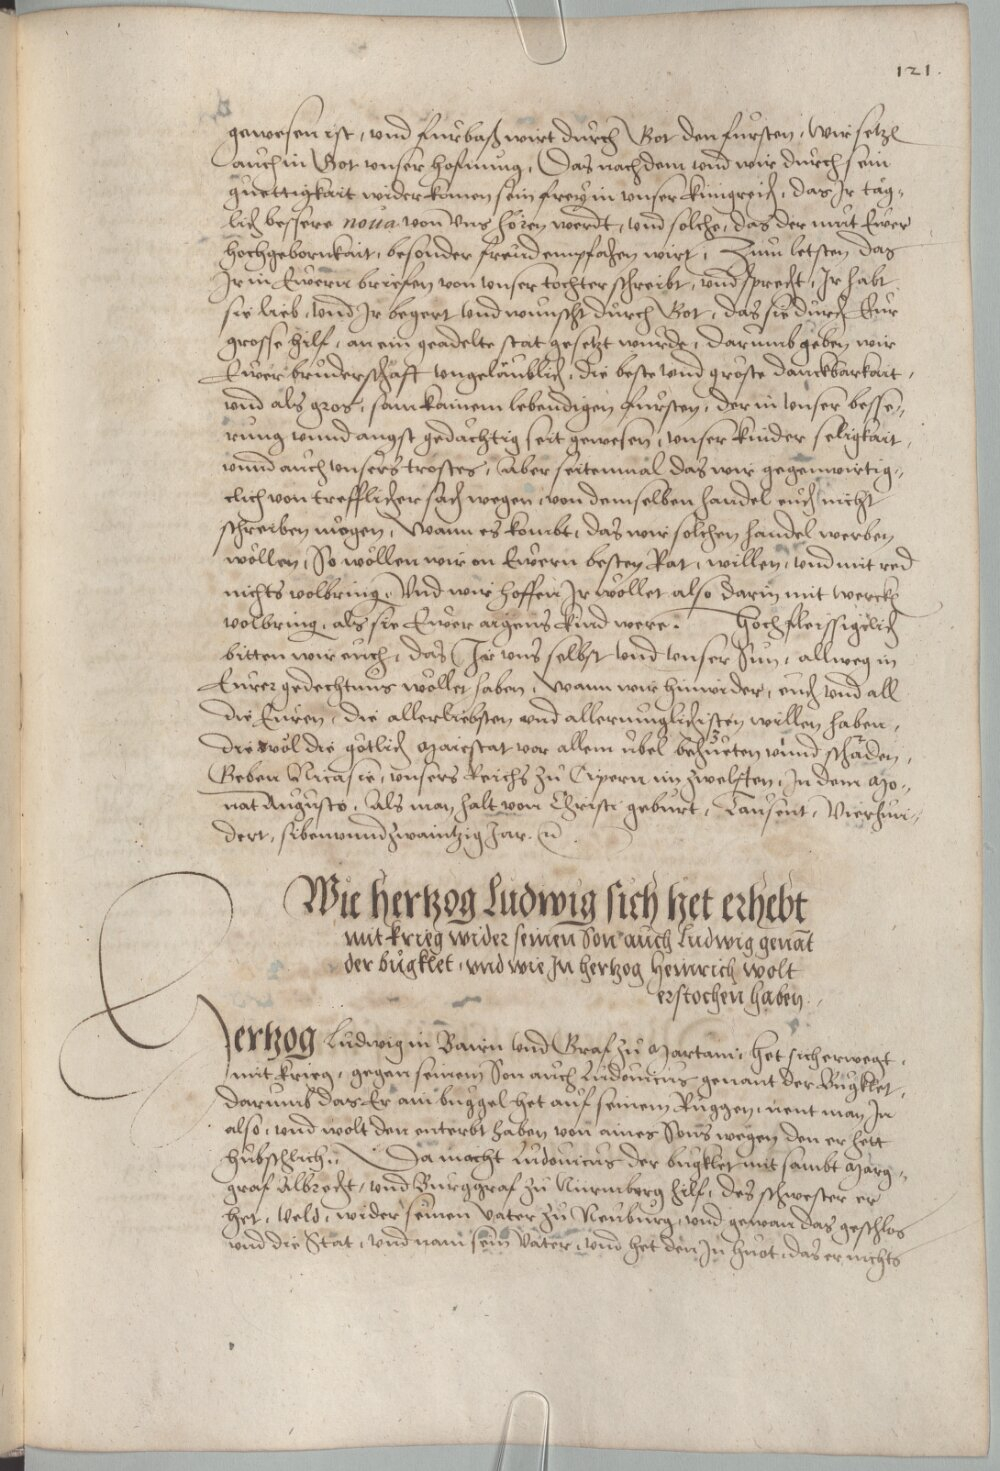 121.
gewesen ist, und furbaß wirt durch Got den fursten, Wir setzen
auch in Got unser hofnung, Das nach dem und wir durch sein
guettigkait widerkomen sein frey in unser kunigreich, das Ir täg-
lich bessere noua von uns hören werdt, und solche, das der mit Ewer
hochgebornkait, besonder freud empfahen wirt, Zum letsten das
Ir in Ewern briefen von unser tochter schreibt, und sprecht, Ir habt
sie lieb, und Ir begert und wunscht durch Got, das sie durch Eur
grosse hilf, an ein geadelte stat gesetzt wurde, darumb geben wir
Ewer bruderschaft ungeläublich, die beste und gröste danckbarkait,
und als gros, sam kainem lebendigen fursten, der in unser besse-
rung unnd angst gedächtig seit gewesen, unser kinder seligkait,
unnd auch unsers trostes, Aber seitenmal das wir gegenwirtig-
clich von trefflicher sach wegen, von demselben handel euch nicht
schreiben mögen, Wann es kombt, das wir solchen handel werben
wöllen, So wöllen wir on Ewern besten Rat, willen, und mit red
nichts volbring, Und wir hoffen Ir wöllet also darin mit wercken
volbring, als sie Ewer aigens kind were. Hochfleissigclich
bitten wir euch, das Ir uns selbst und unser Sun, allweg in
Eurer gedechtnus wöllet haben, Wann wir hinwider, euch und all
die Euren, die allerliebsten und aller muglichisten willen haben,
die wöl die götlich Maiestat vor allem ubel behüeten unnd schäden,
Geben Nicasie, unsers Reichs zu Cipern im zwelften, In dem Mo-
nat Augusto, Als man zalt von Christi geburt, Tausent, Vierhun-
dert, sibenunndzwaintzig Jar.
Wie hertzog Ludwig sich het erhebt
mit krieg wider seinen Son auch Ludwig genant
der bugklet, und wie In hertzog Heinrich wolt
erstochen haben.
Hertzog Ludwig in Bairn und Graf zu Martani, het sich erwegt,
mit krieg, gegen seinem Son auch Ludouicus genant der Bugklet,
darumb das Er ain buggel het auf seinem Ruggen, nent man In
also, und wolt den enterbt haben von aines Sons wegen den er hett
hubschlich. Da macht Ludouicus der bugklet mit sambt Marg-
graf Albrecht, und Burggraf zu Nurmberg hilf, des schwester er
het, Veld, wider seinen vater zu Neuburg, und gewan das geschlos
und die Stat, und nam sein Vater, und het den In huot, das er nichts